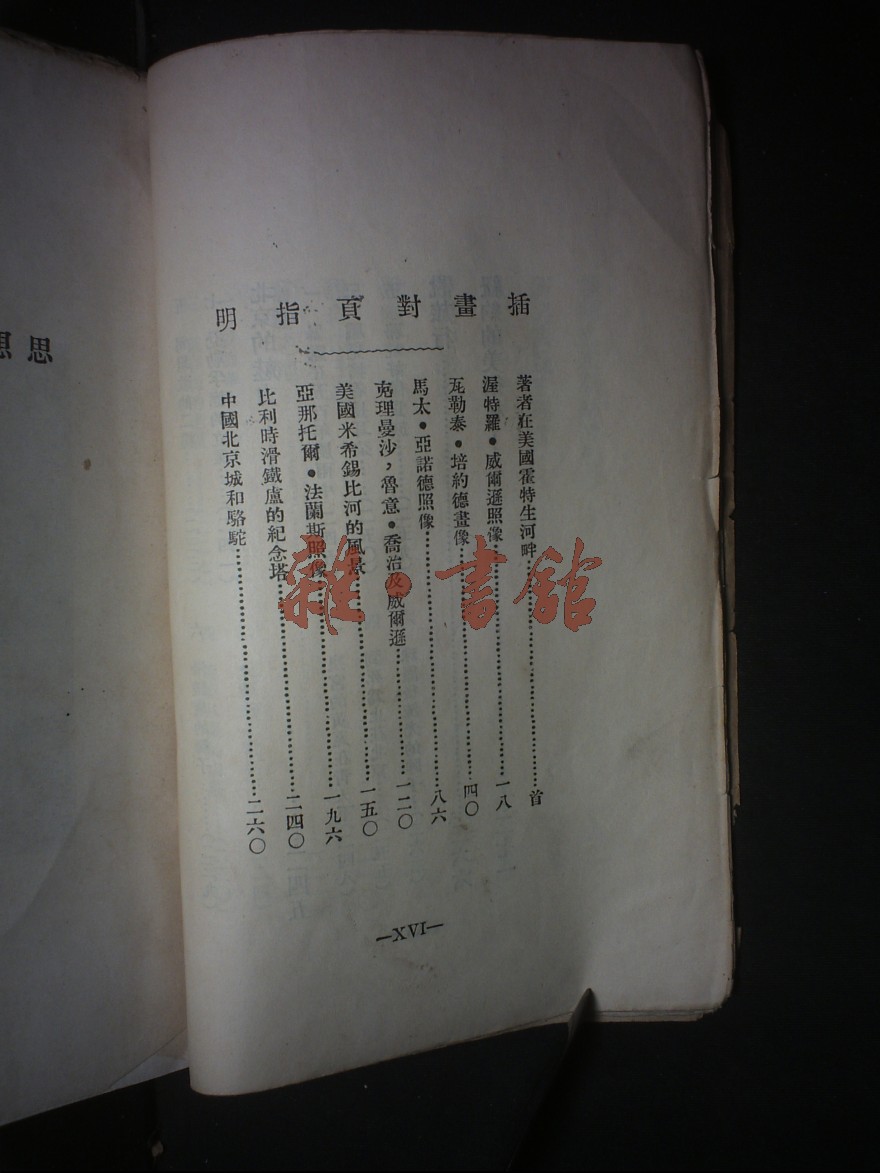 插畫對頁指明
著者在美國霍特生河畔…………首
渥特羅•威爾遜照像…………一八
瓦勒泰•培約德畫像…………四〇
馬太•亞諾德照像…………八六
克理曼沙，魯意•喬治及威爾遜…………一二〇
美國米希錫比河的風景…………一五〇
亞那托爾•法蘭斯照像…………一九六
比利時滑鐵盧的紀念塔…………二四〇
中國北京城和駱駝…………二六〇
—XVI—
思
雜•書館